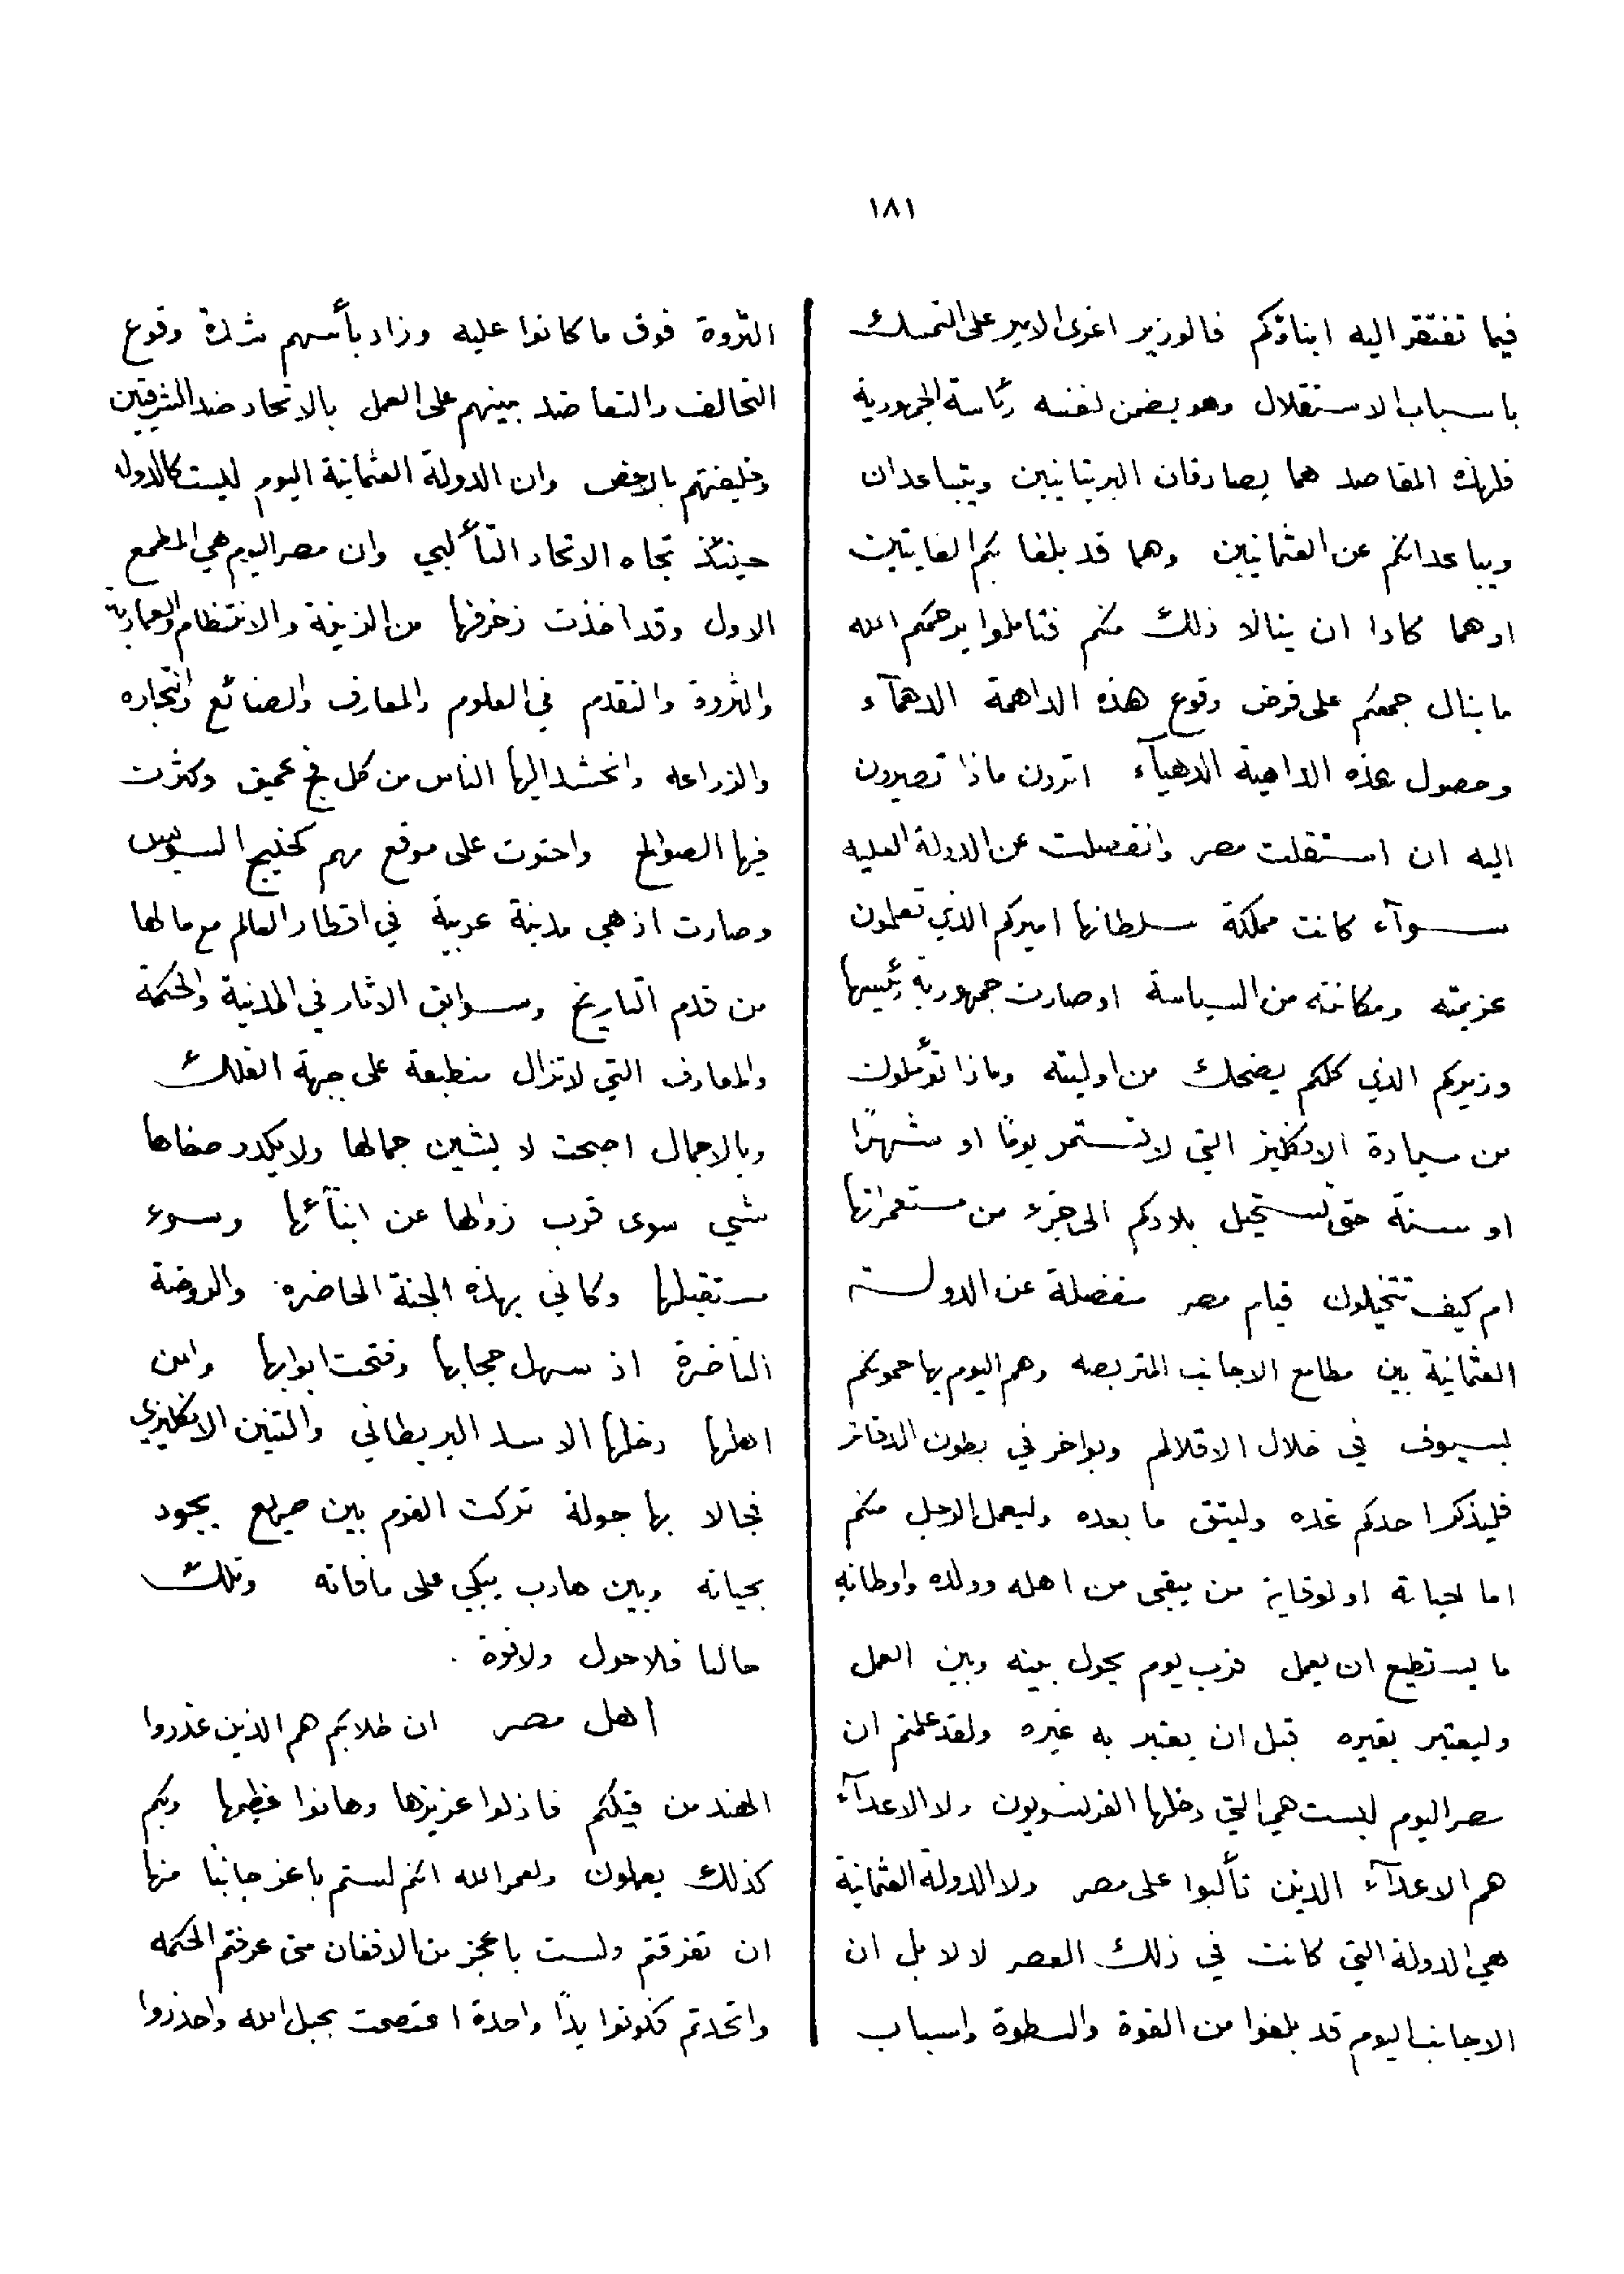 ١٨١
فيما تفتقر اليه ابناؤكم فالوزير اغوى الامير على التمسك
باسباب الاستقلال وهو يضمن لنفسه رئاسة الجمهورية
فلهذه المقاصد هما يصادقان البريتانيين ويتباعدان
ويباعدانكم عن العثمانيين وهما قد بلغا بكم الغايتين
اوهما كادا ان ينالا ذلك منكم فتاملوا يرحمكم الله
ما ينال جمعكم على فرض وقوع هذه الداهمة الدهمآء
وحصول هذه الداهية الدهيآء اترون ماذا تصيرون
اليه ان استقلت مصر وانفصلت عن الدولة العليه
سوآء كانت مملكة سلطانها اميركم الذي تعلمون
عزيمته ومكانته من السياسة او صارت جمهورية رئيسها
وزيركم الذي كلكم يضحك من اوليته وماذا تؤملون
من سيادة الانكليز التي لا تستمر يومًا او شهرًا
او سنة حتى تستحيل بلادكم الى جزء من مستعمراتها
ام كيف تتخيلون قيام مصر منفصلة عن الدولة
العثمانية بين مطامع الاجانب المتربصه وهم اليوم يهاجمونكم
بسيوف في خلال الاقلام وبواخر في بطون الدفاتر
فليذكر احدكم غده وليتق ما بعده وليعمل الرجل منكم
اما لحياته او لوقاية من يبقى من اهله وولده واوطانه
ما يستطيع ان يعمل فرب يوم يحول بينه وبين العمل
وليعتبر بغيره قبل ان يعتبر به غيره ولقد علمتم ان
مصر اليوم ليست هي التي دخلها الفرنسويون ولا الاعدآء
هم الاعدآء الذين تألبوا على مصر ولا الدولة العثمانية
هي الدولة التي كانت في ذلك العصر لا لا بل ان
الاجانب اليوم قد بلغوا من القوة والسطوة واسباب
الثروة فوق ما كانوا عليه وزاد بأسهم شدة وقوع
التحالف والتعاضد بينهم على العمل بالاتحاد ضد الشرقيين
وخليفتهم بالارض وان الدولة العثمانية اليوم ليست كالدوله
حينئذ تجاه الاتحاد التألبي وان مصر اليوم هي المطمع
الاول وقد اخذت زخرفها من الزينة والانتظام والعمارية
والثروة والتقدم في العلوم والمعارف والصنائع والتجاره
والزراعه وانحشد اليها الناس من كل فج عميق وكثرت
فيها الصوالح واحتوت على موقع مهم كخليج السويس
وصارت اذ هي مدينة عربية في اقطار العالم مع ما لها
من قدم التاريخ وسوابق الاثار في المدنية والحكمة
والمعارف التي لا تزال منطبعة على جبهة الفلك
وبالاجمال اصبحت لا يشين جمالها ولا يكدر صفاها
شي سوى قرب زوالها عن ابنآئها وسوء
مستقبلها وكاني بهذه الجنة الحاضره والروضة
الناضرة اذ سهل حجابها وفتحت ابوابها وامن
اهلها دخلها الاسد البريطاني والتنين الانكليزي
فجالا بها جولة تركت القوم بين صريع يجود
بحياته وبين هارب يبكي على مافاته وتلك
حالنا فلاحول ولاقوة .
اهل مصر ان طلابكم هم الذين غدروا
الهند من قبلكم فاذلوا عزيزها وهانوا عظيمها وبكم
كذلك يعملون ولعمر الله انكم لستم باعز جانبًا منها
ان تفرقتم ولست باعجز من الافغان متى عرفتم الحكمه
واتحدتم فكونوا يدًا واحدة اعتصمت بحبل الله واحذروا